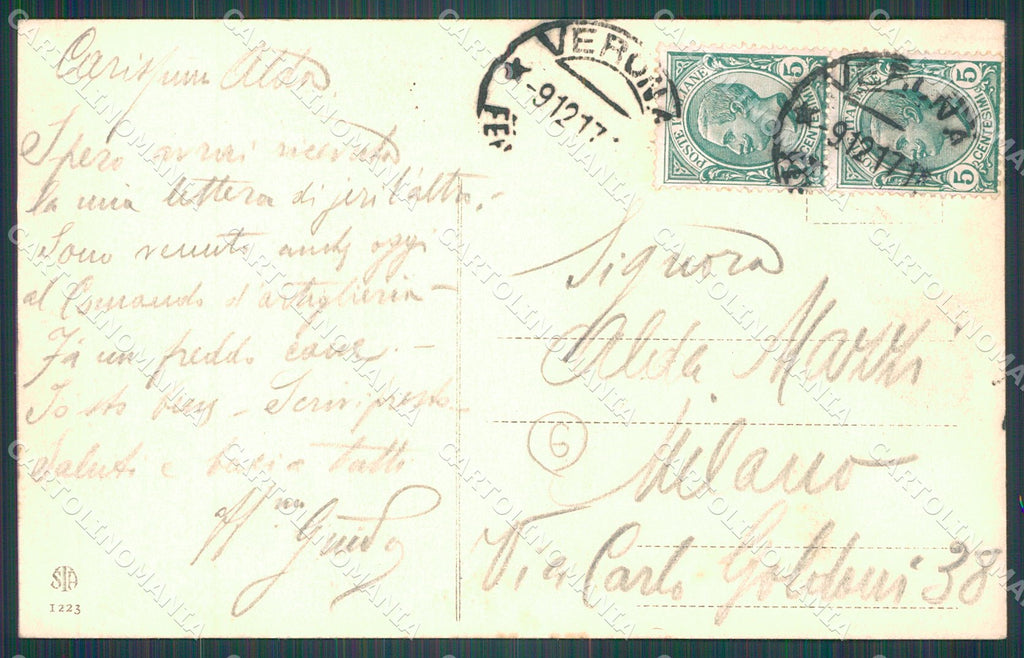 Carissima Alda
Spero avrai ricevuto
la mia lettera di jeri l'altro. -
Sono venuto anche oggi
al Comando d'artiglieria -
Fa un freddo cane. -
Io sto bene - Scrivi presto -
Saluti e baci a tutti
Aff.mo Guido
STA
1223
VERONA
-9.12.17.
FE
POSTE ITALIANE
5
CENTESIMI
5
VERONA
-9.12.17
5
CENTESIMI
5
Signora
Alda Mazzi
6
Milano
Via Carlo Goldoni 38
CARTOLINOMANIA